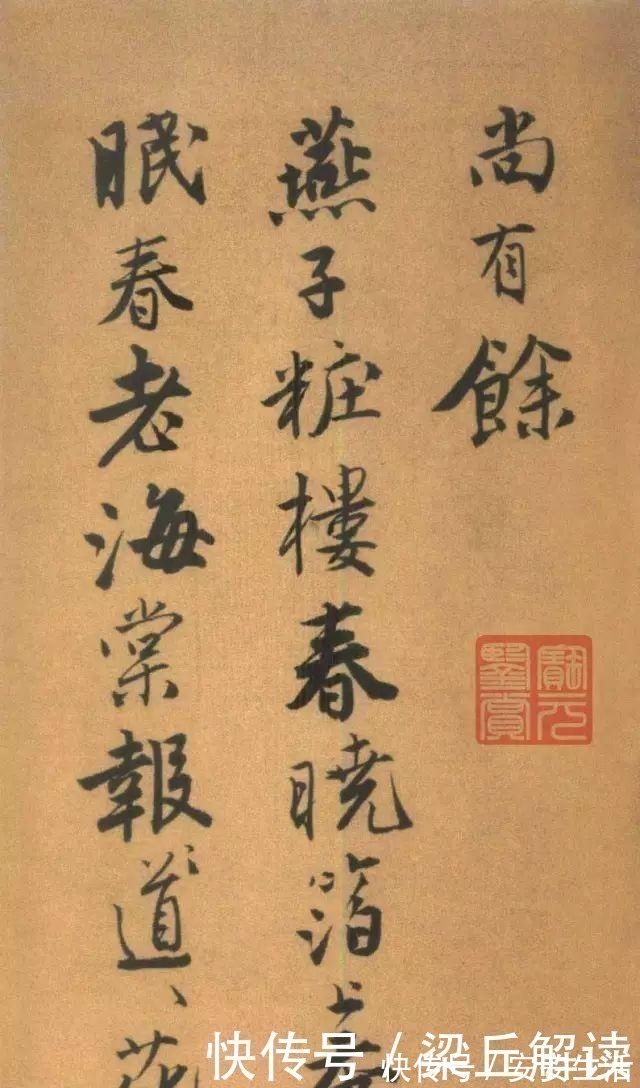 尚有餘
燕子粧樓春曉箔上
眠春老海棠報道、花
快传号 / 梁丘解读
快传号